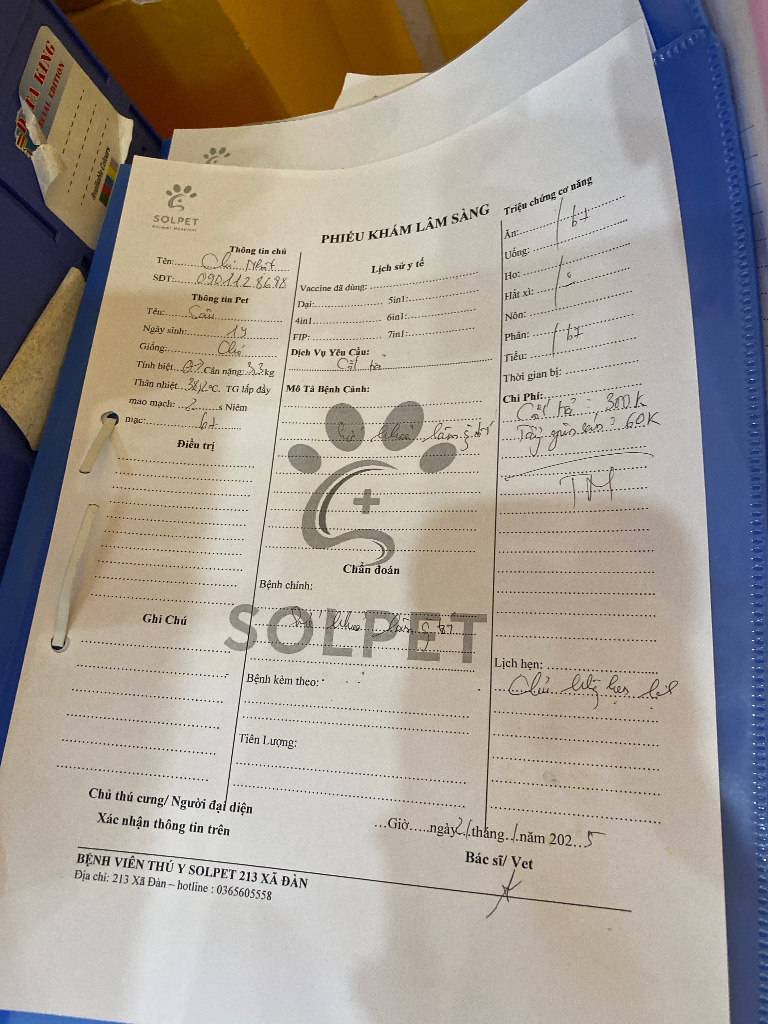 TA KING
SPECIAL EDITION
Available Colours
SOLPET
Animal Hospital
PHIẾU KHÁM LÂM SÀNG
Thông tin chủ
Tên: Chú Nhật
SĐT: 0901128698
Thông tin Pet
Tên: Cầu
Ngày sinh: 1y
Giống: Chó
Tính biệt Cân nặng: 3.3 kg
Thân nhiệt 38,2 °C. TG lấp đầy
mao mạch: 2 s Niêm
mạc: bt
Điều trị
Ghi Chú
Lịch sử y tế
Vaccine đã dùng:
Dại: 5in1:
4in1 6in1:
FIP: 7in1:
Dịch Vụ Yêu Cầu:
Cắt tỉa
Mô Tả Bệnh Cảnh:
lâm
Chẩn đoán
Bệnh chính:
SOLPET
Bệnh kèm theo:
Tiên Lượng:
Triệu chứng cơ năng
Ăn:
Uống: bt
Ho:
Hắt xì:
Nôn:
Phân:
Tiểu: bt
Thời gian bị:
Chi Phí:
Cắt tỉa : 300K
Tẩy giun sán : 60K
TM
Lịch hẹn:
Chủ
Chủ thú cưng/ Người đại diện
Xác nhận thông tin trên
...Giờ.....ngày 21 tháng 1 năm 2025
Bác sĩ/ Vet
BỆNH VIỆN THÚ Y SOLPET 213 XÃ ĐÀN
Địa chỉ: 213 Xã Đàn – hotline : 0365605558